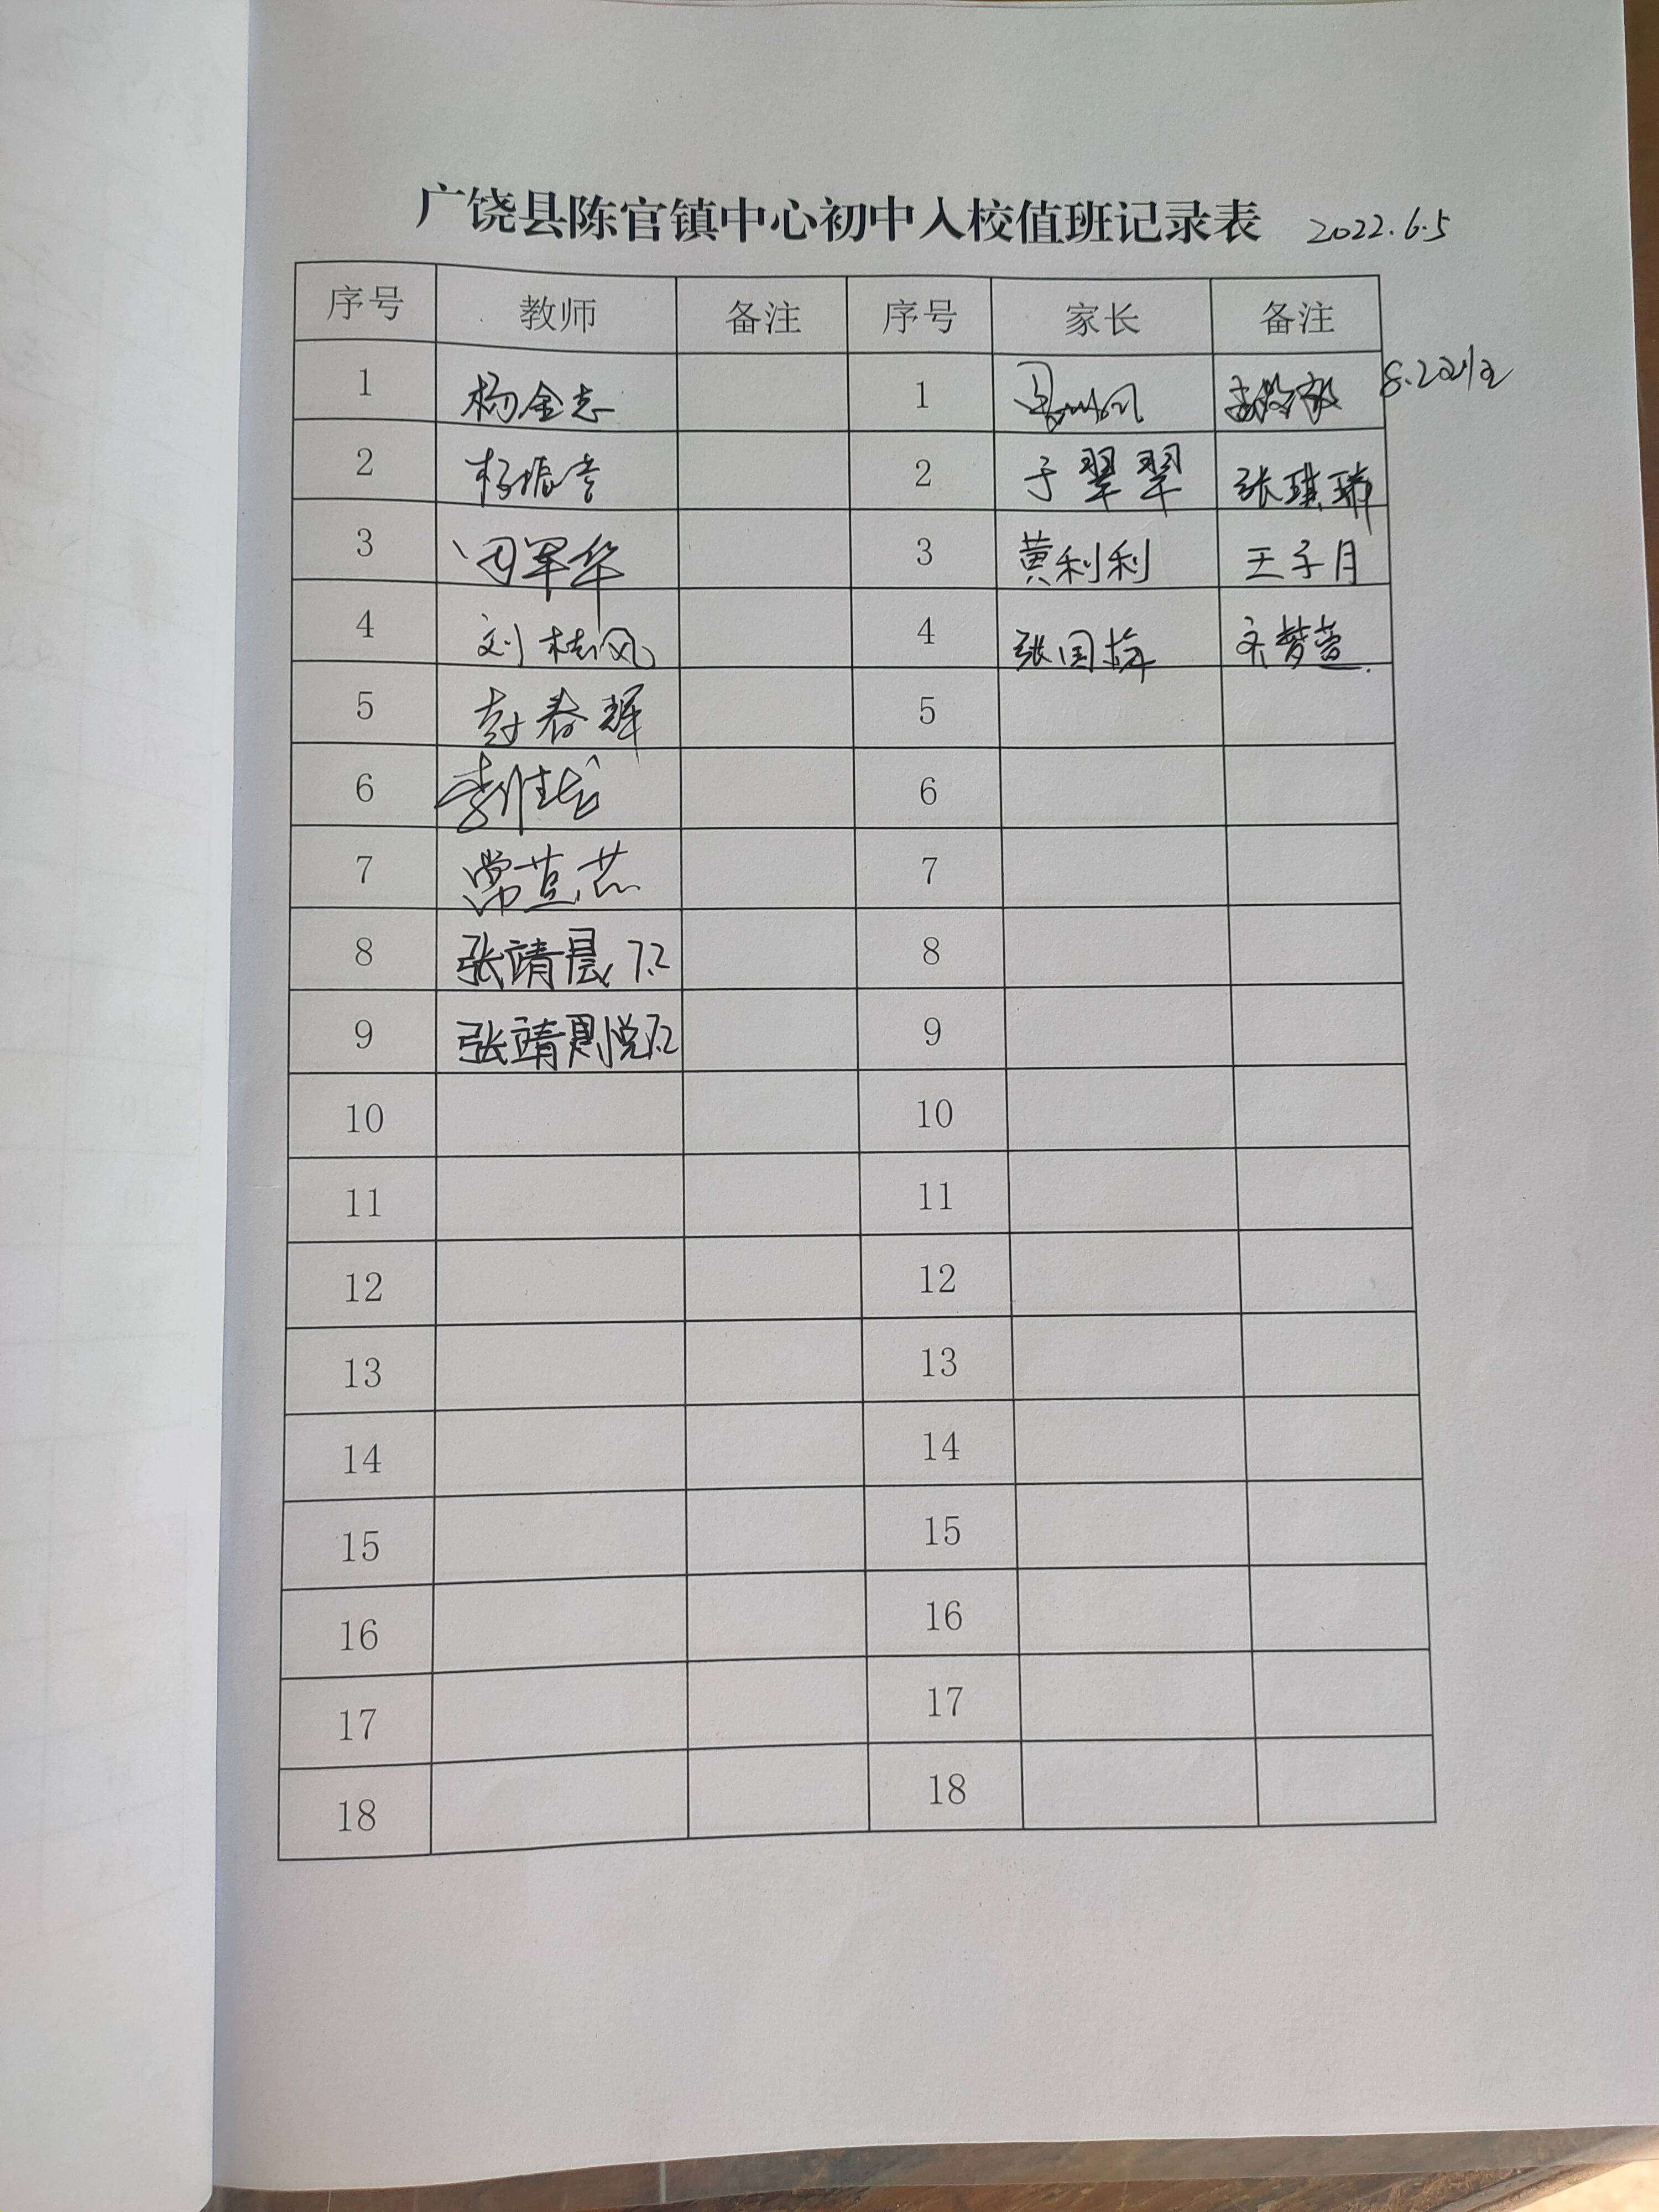 广饶县陈官镇中心初中入校值班记录表 2022.6.5
序号 教师 备注 序号 家长 备注
1 杨金志 1
2 杨振 2 于翠翠 张琪
3 军华 3 黄利利 王子月
4 刘桂风 4 张国梅 齐梦萱
5 春辉 5
6 李 6
7 常 7
8 张靖 7.2 8
9 张靖 悦7.2 9
10 10
11 11
12 12
13 13
14 14
15 15
16 16
17 17
18 18